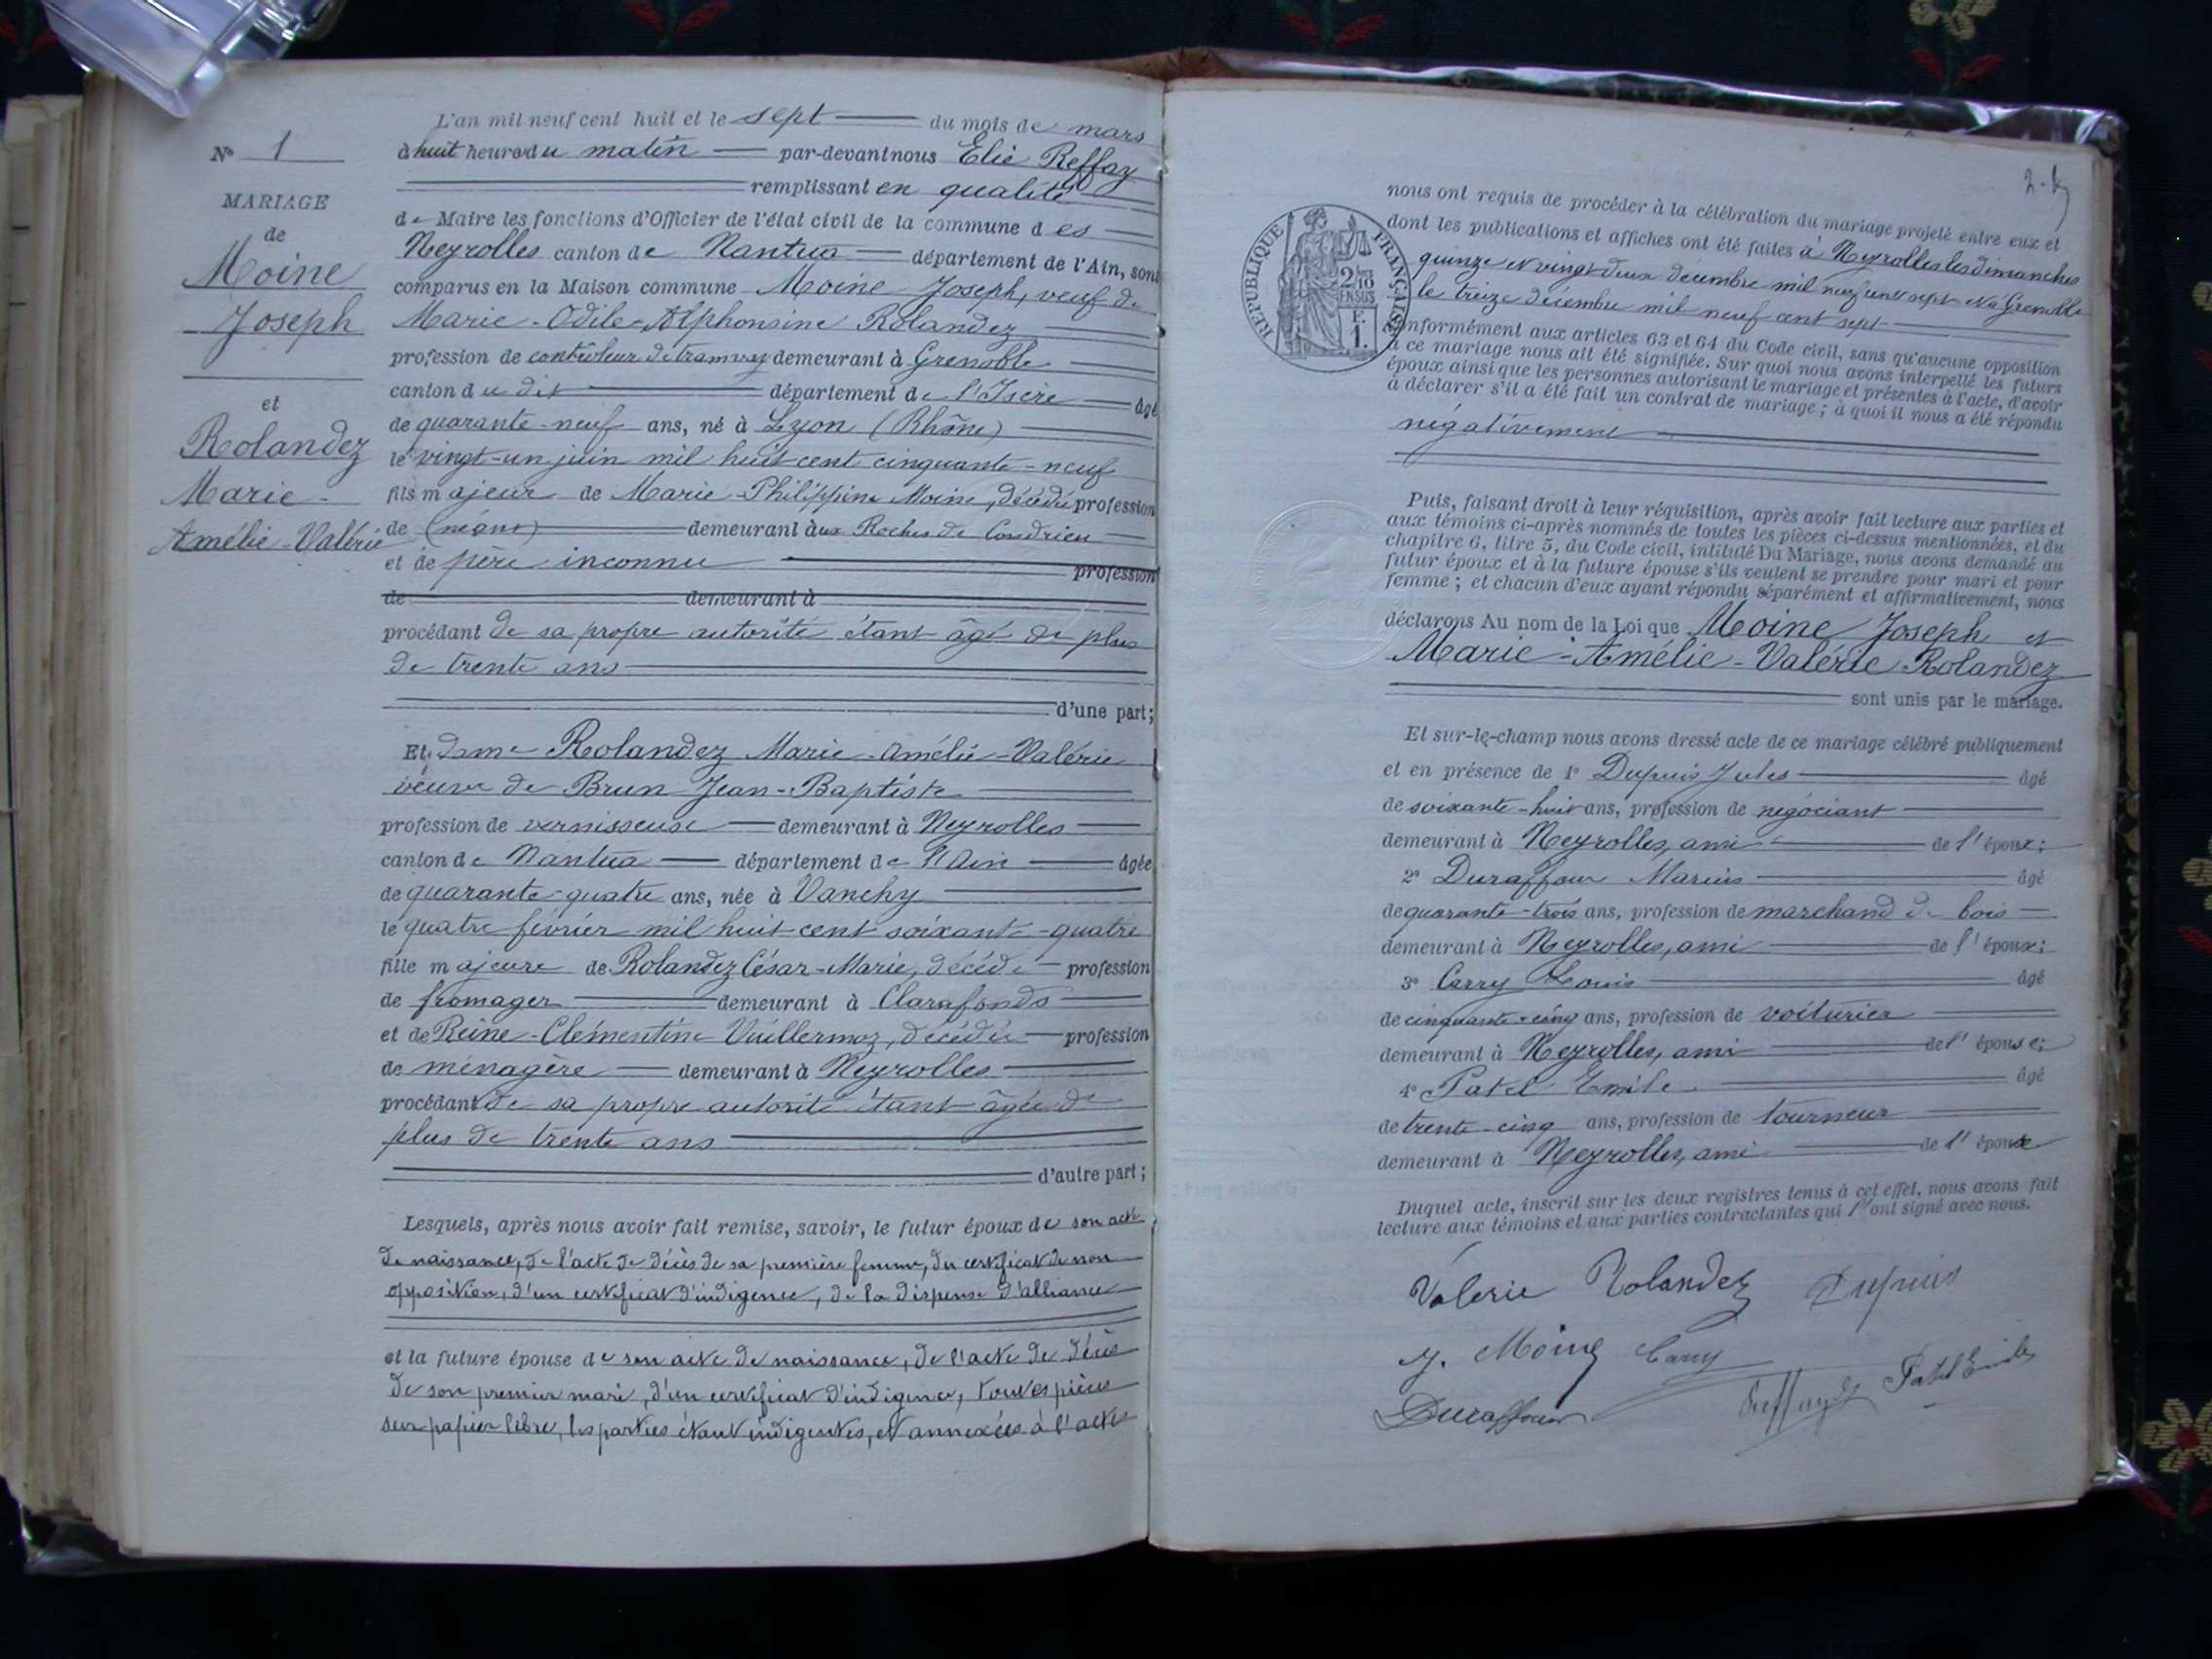 N° 1
MARIAGE
de
Moine
Joseph
et
Rolandez
Marie-
Amélie-Valérie
L'an mil neuf cent huit et le sept du mois de mars
à huit heures du matin par-devant nous Elie Reffay
remplissant en qualité
de Maire les fonctions d'Officier de l'état civil de la commune des
Neyrolles canton de Nantua département de l'Ain, sont
comparus en la Maison commune Moine Joseph, veuf de
Marie-Odile-Alphonsine Rolandez
profession de contrôleur de tramway demeurant à Grenoble
canton du dit département de l'Isère âgé
de quarante-neuf ans, né à Lyon (Rhône)
le vingt-un juin mil huit cent cinquante-neuf
fils majeur de Marie-Philippine Moine, décédée profession
de (néant) demeurant aux Roches de Condrieu
et de père inconnu profession
de demeurant à
procédant de sa propre autorité étant âgé de plus
de trente ans
d'une part;
Et dame Rolandez Marie-Amélie-Valérie
veuve de Brun Jean-Baptiste
profession de vernisseuse demeurant à Neyrolles
canton de Nantua département de l'Ain âgée
de quarante-quatre ans, née à Vanchy
le quatre février mil huit cent soixante-quatre
fille majeure de Rolandez César-Marie, décédé profession
de fromager demeurant à Clarafonds
et de Reine-Clémentine Vuillermoz, décédée profession
de ménagère demeurant à Neyrolles
procédant de sa propre autorité étant âgée de
plus de trente ans
d'autre part;
Lesquels, après nous avoir fait remise, savoir, le futur époux de son acte
de naissance, de l'acte de décès de sa première femme, du certificat de non
opposition, d'un certificat d'indigence, de la dispense d'alliance
et la future épouse de son acte de naissance, de l'acte de décès
de son premier mari, d'un certificat d'indigence, toutes pièces
sur papier libre, les parties étant indigentes, et annexées à l'acte
nous ont requis de procéder à la célébration du mariage projeté entre eux et
dont les publications et affiches ont été faites à Neyrolles les dimanches
quinze et vingt-deux décembre mil neuf cent sept et à Grenoble
le treize décembre mil neuf cent sept
RÉPUBLIQUE FRANÇAISE
2/10 EN SUS
1 F.
conformément aux articles 63 et 64 du Code civil, sans qu'aucune opposition
à ce mariage nous ait été signifiée. Sur quoi nous avons interpellé les futurs
époux ainsi que les personnes autorisant le mariage et présentes à l'acte, d'avoir
à déclarer s'il a été fait un contrat de mariage; à quoi il nous a été répondu
négativement
Puis, faisant droit à leur réquisition, après avoir fait lecture aux parties et
aux témoins ci-après nommés de toutes les pièces ci-dessus mentionnées, et du
chapitre 6, titre 5, du Code civil, intitulé Du Mariage, nous avons demandé au
futur époux et à la future épouse s'ils veulent se prendre pour mari et pour
femme; et chacun d'eux ayant répondu séparément et affirmativement, nous
déclarons Au nom de la Loi que Moine Joseph et
Marie-Amélie-Valérie Rolandez
sont unis par le mariage.
Et sur-le-champ nous avons dressé acte de ce mariage célébré publiquement
et en présence de 1° Dupuis Jules âgé
de soixante-huit ans, profession de négociant
demeurant à Neyrolles, ami de l'époux;
2° Duraffour Marius âgé
de quarante-trois ans, profession de marchand de bois
demeurant à Neyrolles, ami de l'époux;
3° Carry Louis âgé
de cinquante-cinq ans, profession de voiturier
demeurant à Neyrolles, ami de l'épouse;
4° Patel Emile âgé
de trente-cinq ans, profession de tourneur
demeurant à Neyrolles, ami de l'épouse
Duquel acte, inscrit sur les deux registres tenus à cet effet, nous avons fait
lecture aux témoins et aux parties contractantes qui l'ont signé avec nous.
Valerie Rolandez Dupuis
J. Moine Carry
Duraffour Reffay E Patel Emile